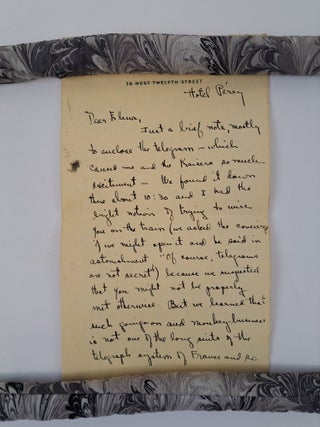 38·WEST·TWELFTH·STREET
Hotel Perey
Dear Elena,
Just a brief note, mostly
to enclose the telegram – which
caused me and the Kaisers so much
excitement – We found it down
there about 10:30 and I had the
bright notion of trying to wire
you on the train (we asked the concierge
if we might open it and he said in
astonishment "Of course, telegrams
are not secret") because we suspected
that you might not be properly
met otherwise. But we learned that
such goings on and monkey-business
is not one of the long suits of the
telegraph system of France and so